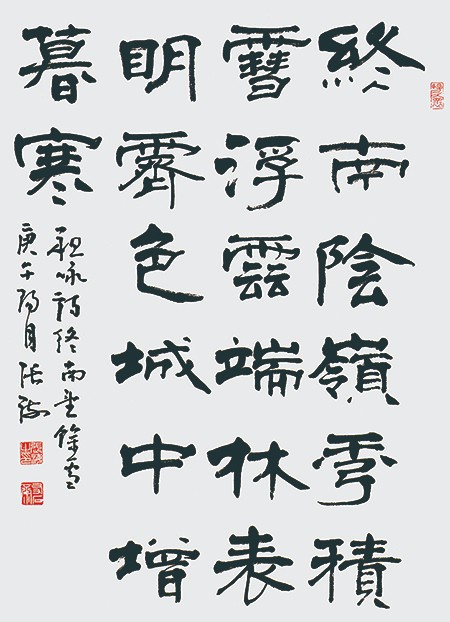 終南陰嶺秀積
雪浮雲端林表
明霽色城中增
暮寒
祖咏詩終南望餘雪
庚午陽月張